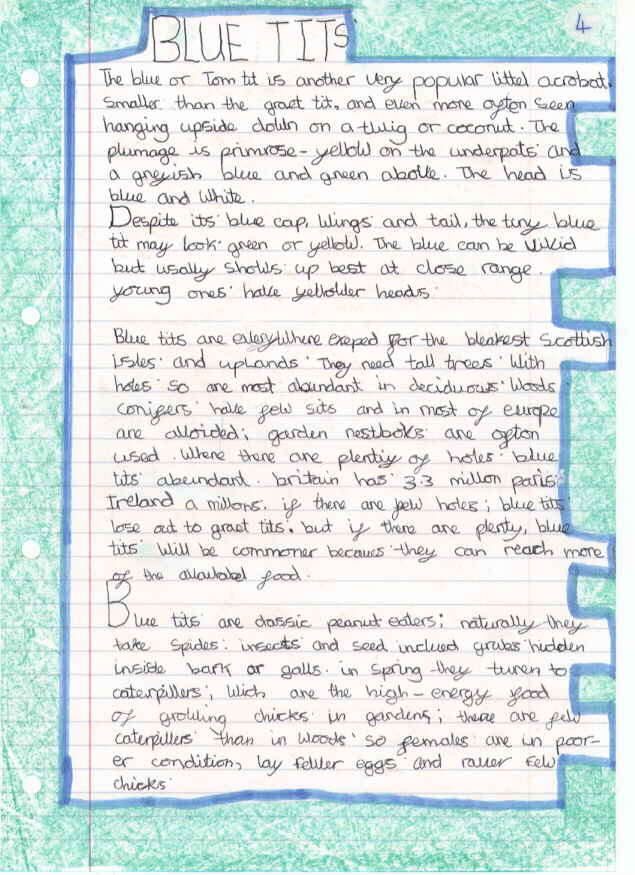 4
BLUE TITS
The blue or Tom tit is another very popular littel acrobat.
Smaller than the graet tit, and even more ofton seen
hanging upside down on a twig or coconut. The
plumage is primrose-yellow on the underpats and
a greyish blue and green above. The head is
blue and white.
Despite its blue cap, wings and tail, the tiny blue
tit may look green or yellow. The blue can be vivid
but usally shows up best at close range.
young ones have yellower heads.
Blue tits are everywhere exeped for the bleakest Scottish
isles and uplands. They need tall trees with
holes so are most abundant in deciduous woods
conifers have few sits and in most of europe
are avoided; garden nestboks are ofton
used. Where there are plentiy of holes blue
tits abeundant. britain has 3.3 millon paris
Ireland a millons. if there are few holes; blue tits
lose out to graet tits. but if there are plenty, blue
tits will be commoner becaues they can reach more
of the availabel food.
Blue tits are classic peanut eaters; naturally they
take spides. insects and seed inclued grubs hidden
inside bark or galls. in spring they turen to
caterpillers; wich are the high-energy food
of growing chicks in gardens; there are few
caterpillers than in woods so females are in poor-
er condition, lay fewer eggs and few
chicks